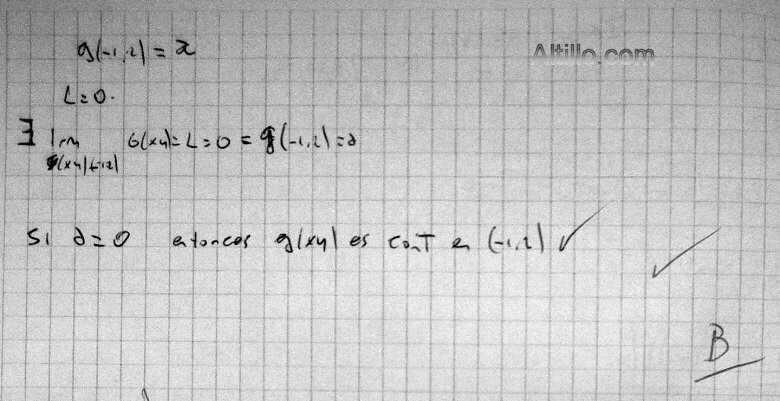 Altillo.com
g(-1,2) = a
L=0.
∃ lim G(xy)=L=0=g(-1,2)=a
(xy)(-1,2)
Si a=0 entonces g(xy) es conT en (-1,2) ✓
✓
B